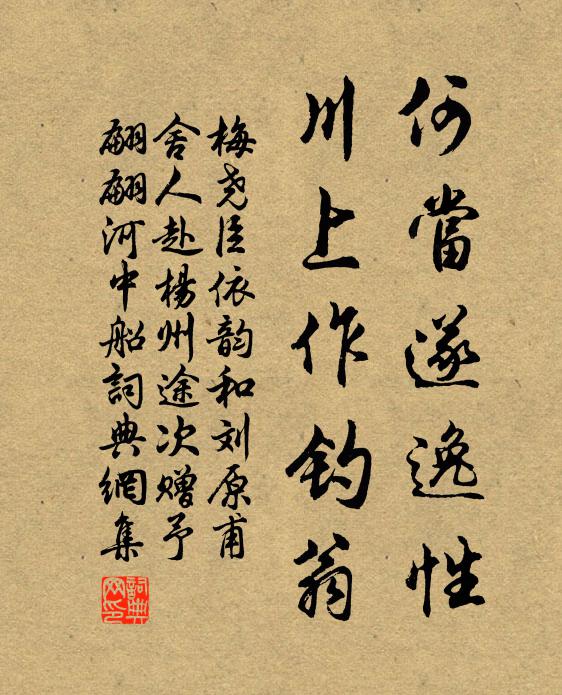 何當遂逸性
川上作钓翁
梅尧臣依韵和刘原甫
舍人赴楊州途次赠予
翩翩河中船詞典網集
詞典网印